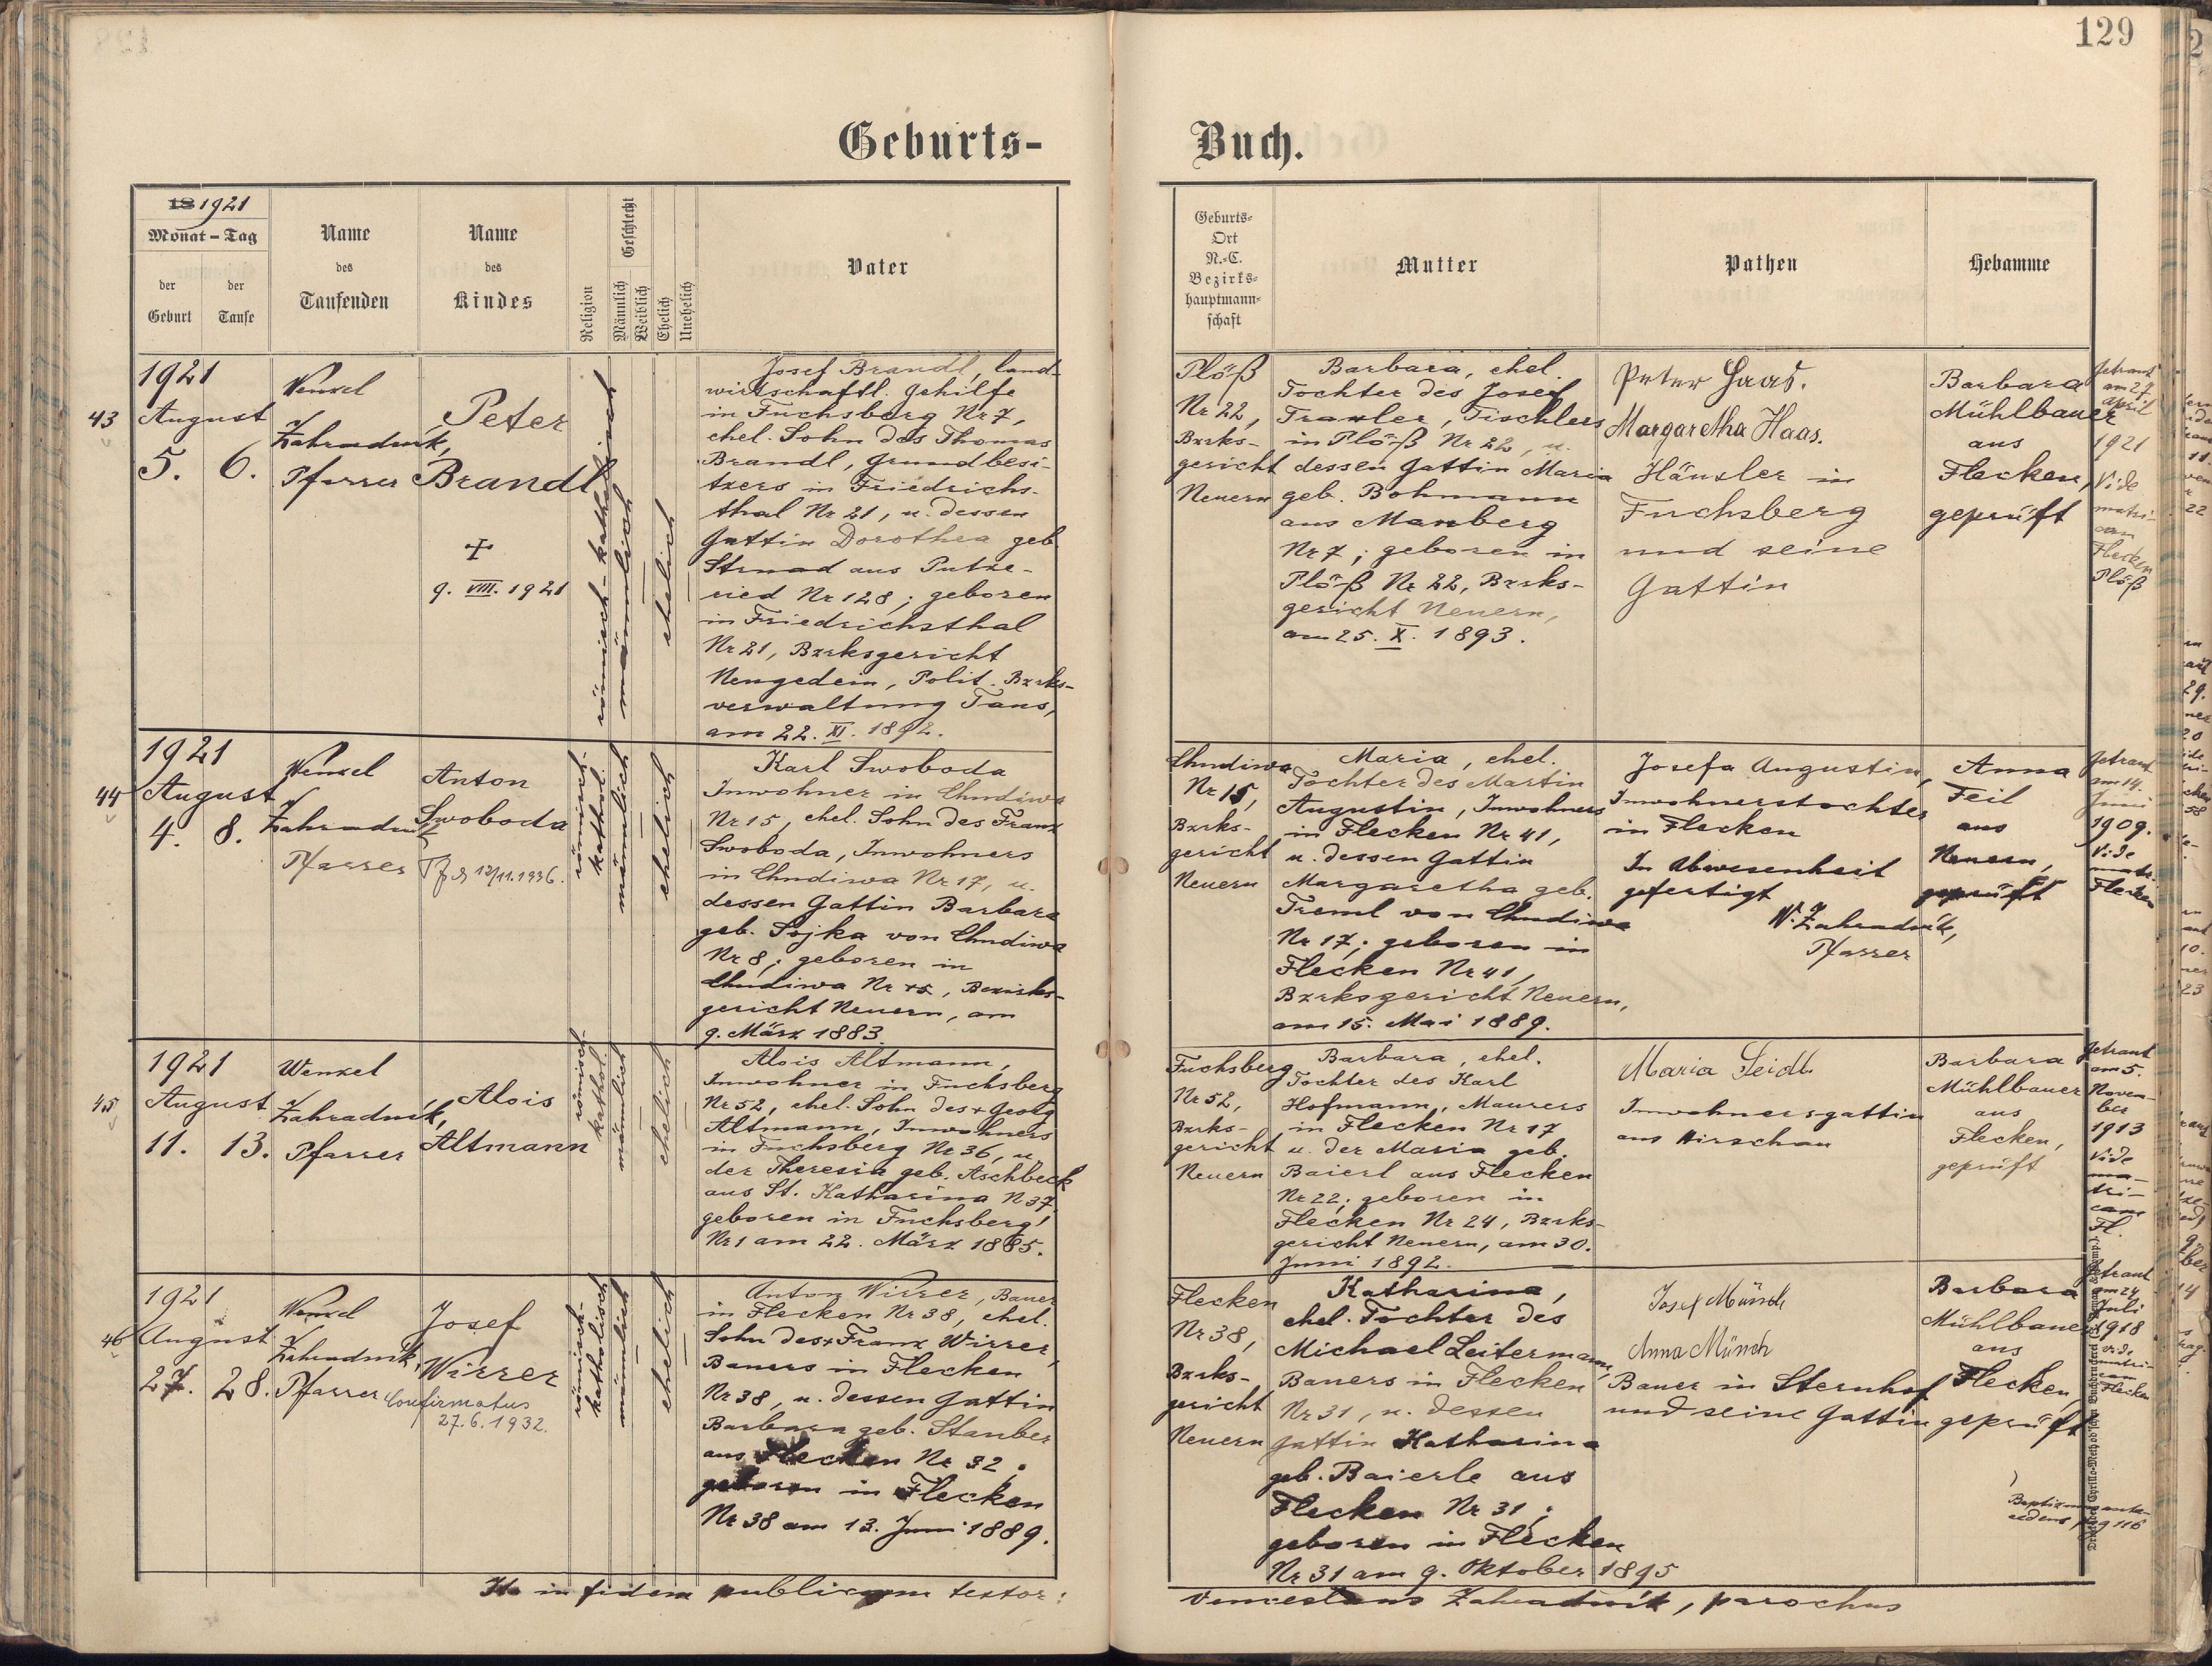 129
Geburts-
Buch.
18 1921
Monat - Tag
der Geburt
der Taufe
Name
des
Taufenden
Name
des
Kindes
Religion
Geschlecht
Männlich
Weiblich
Ehelich
Unehelich
Vater
Geburts-
Ort
N.-C.
Bezirks-
hauptmann-
schaft
Mutter
Pathen
Hebamme
43
1921
August
5. 6.
Wenzel
Zahradník,
Pfarrer
Peter
Brandl
+
9. VIII. 1921
römisch-katholisch
männlich
ehelich
Josef Brandl, land-
wirtschaftl. Gehilfe
in Fuchsberg Nr 7,
ehel. Sohn des Thomas
Brandl, Grundbesi-
tzers in Friedrichs-
thal Nr 21, u. dessen
Gattin Dorothea geb.
Strnad aus Putze-
ried Nr 128; geboren
in Friedrichsthal
Nr 21, Bzrksgericht
Neugedein, Polit. Bzrks-
verwaltung Taus,
am 22. XI. 1892.
Plöß
Nr 22,
Bzrks-
gericht
Neuern
Barbara, ehel.
Tochter des Josef
Traxler, Tischlers
in Plöß Nr 22, u.
dessen Gattin Maria
geb. Bohmann
aus Maxberg
Nr 7; geboren in
Plöß Nr 22, Bzrks-
gericht Neuern,
am 25. X. 1893.
Peter Haas.
Margaretha Haas.
Häusler in
Fuchsberg
und seine
Gattin
Barbara
Mühlbauer
aus
Flecken,
geprüft
Getraut
am 27.
April
1921
Vide
matri-
cam
Flecken
Plöß
44
1921
August
4. 8.
Wenzel
Zahradník
Pfarrer
Anton
Swoboda
12/11.1936.
römisch-
kathol.
männlich
ehelich
Karl Swoboda
Inwohner in Chudiwa
Nr 15, ehel. Sohn des Franz
Swoboda, Inwohners
in Chudiwa Nr 17, u.
dessen Gattin Barbara
geb. Sojka von Chudiwa
Nr 8; geboren in
Chudiwa Nr 15, Bezirks-
gericht Neuern, am
9. März 1883.
Chudiwa
Nr 15,
Bzrks-
gericht
Neuern
Maria, ehel.
Tochter des Martin
Augustin, Inwohners
in Flecken Nr 41,
u. dessen Gattin
Margaretha geb.
Treml von Chudiwa
Nr 17; geboren in
Flecken Nr 41,
Bzrksgericht Neuern,
am 15. Mai 1889.
Josefa Augustin,
Inwohnerstochter
in Flecken
In Abwesenheit
gefertigt
W. Zahradník,
Pfarrer
Anna
Feil
aus
Neuern,
geprüft
Getraut
am 14.
Juni
1909.
Vide
matr.
Flecken
45
1921
August
11. 13.
Wenzel
Zahradník,
Pfarrer
Alois
Altmann
römisch-
kathol.
männlich
ehelich
Alois Altmann,
Inwohner in Fuchsberg
Nr 52, ehel. Sohn des + Georg
Altmann, Inwohners
in Fuchsberg Nr 36, u.
der Theresia geb. Aschbeck
aus St. Katharina N 37,
geboren in Fuchsberg
Nr 1 am 22. März 1885.
Fuchsberg
Nr 52,
Bzrks-
gericht
Neuern
Barbara, ehel.
Tochter des Karl
Hofmann, Maurers
in Flecken Nr 17
u. der Maria geb.
Baierl aus Flecken
Nr 22; geboren in
Flecken Nr 24, Bzrks-
gericht Neuern, am 30.
Juni 1892.
Maria Seidl
Inwohnersgattin
aus Hirschau
Barbara
Mühlbauer
aus
Flecken,
geprüft
Getraut
am 5.
Novem-
ber
1913
Vide
ma-
tri-
cam
Fl.
46
1921
August
27. 28.
Wenzel
Zahradník,
Pfarrer
Josef
Wirrer
Confirmatus
27.6.1932.
römisch-
katholisch
männlich
ehelich
Anton Wirrer, Bauer
in Flecken Nr 38, ehel.
Sohn des + Franz Wirrer,
Bauers in Flecken
Nr 38, u. dessen Gattin
Barbara geb. Stauber
aus Flecken Nr 32;
geboren in Flecken
Nr 38 am 13. Juni 1889.
Flecken
Nr 38,
Bzrks-
gericht
Neuern
Katharina,
ehel. Tochter des
Michael Leitermann,
Bauers in Flecken
Nr 31, u. dessen
Gattin Katharina
geb. Baierle aus
Flecken Nr 31;
geboren in Flecken
Nr 31 am 9. Oktober 1895
Josef Münch
Anna Münch
Bauer in Sternhof
und seine Gattin
Barbara
Mühlbauer
aus
Flecken,
geprüft
Getraut
am 24.
Juli
1918
vide
matri-
cam
Flecken
pag 116
Ita in fidem publicam testor:
Venceslaus Zahradník, parochus